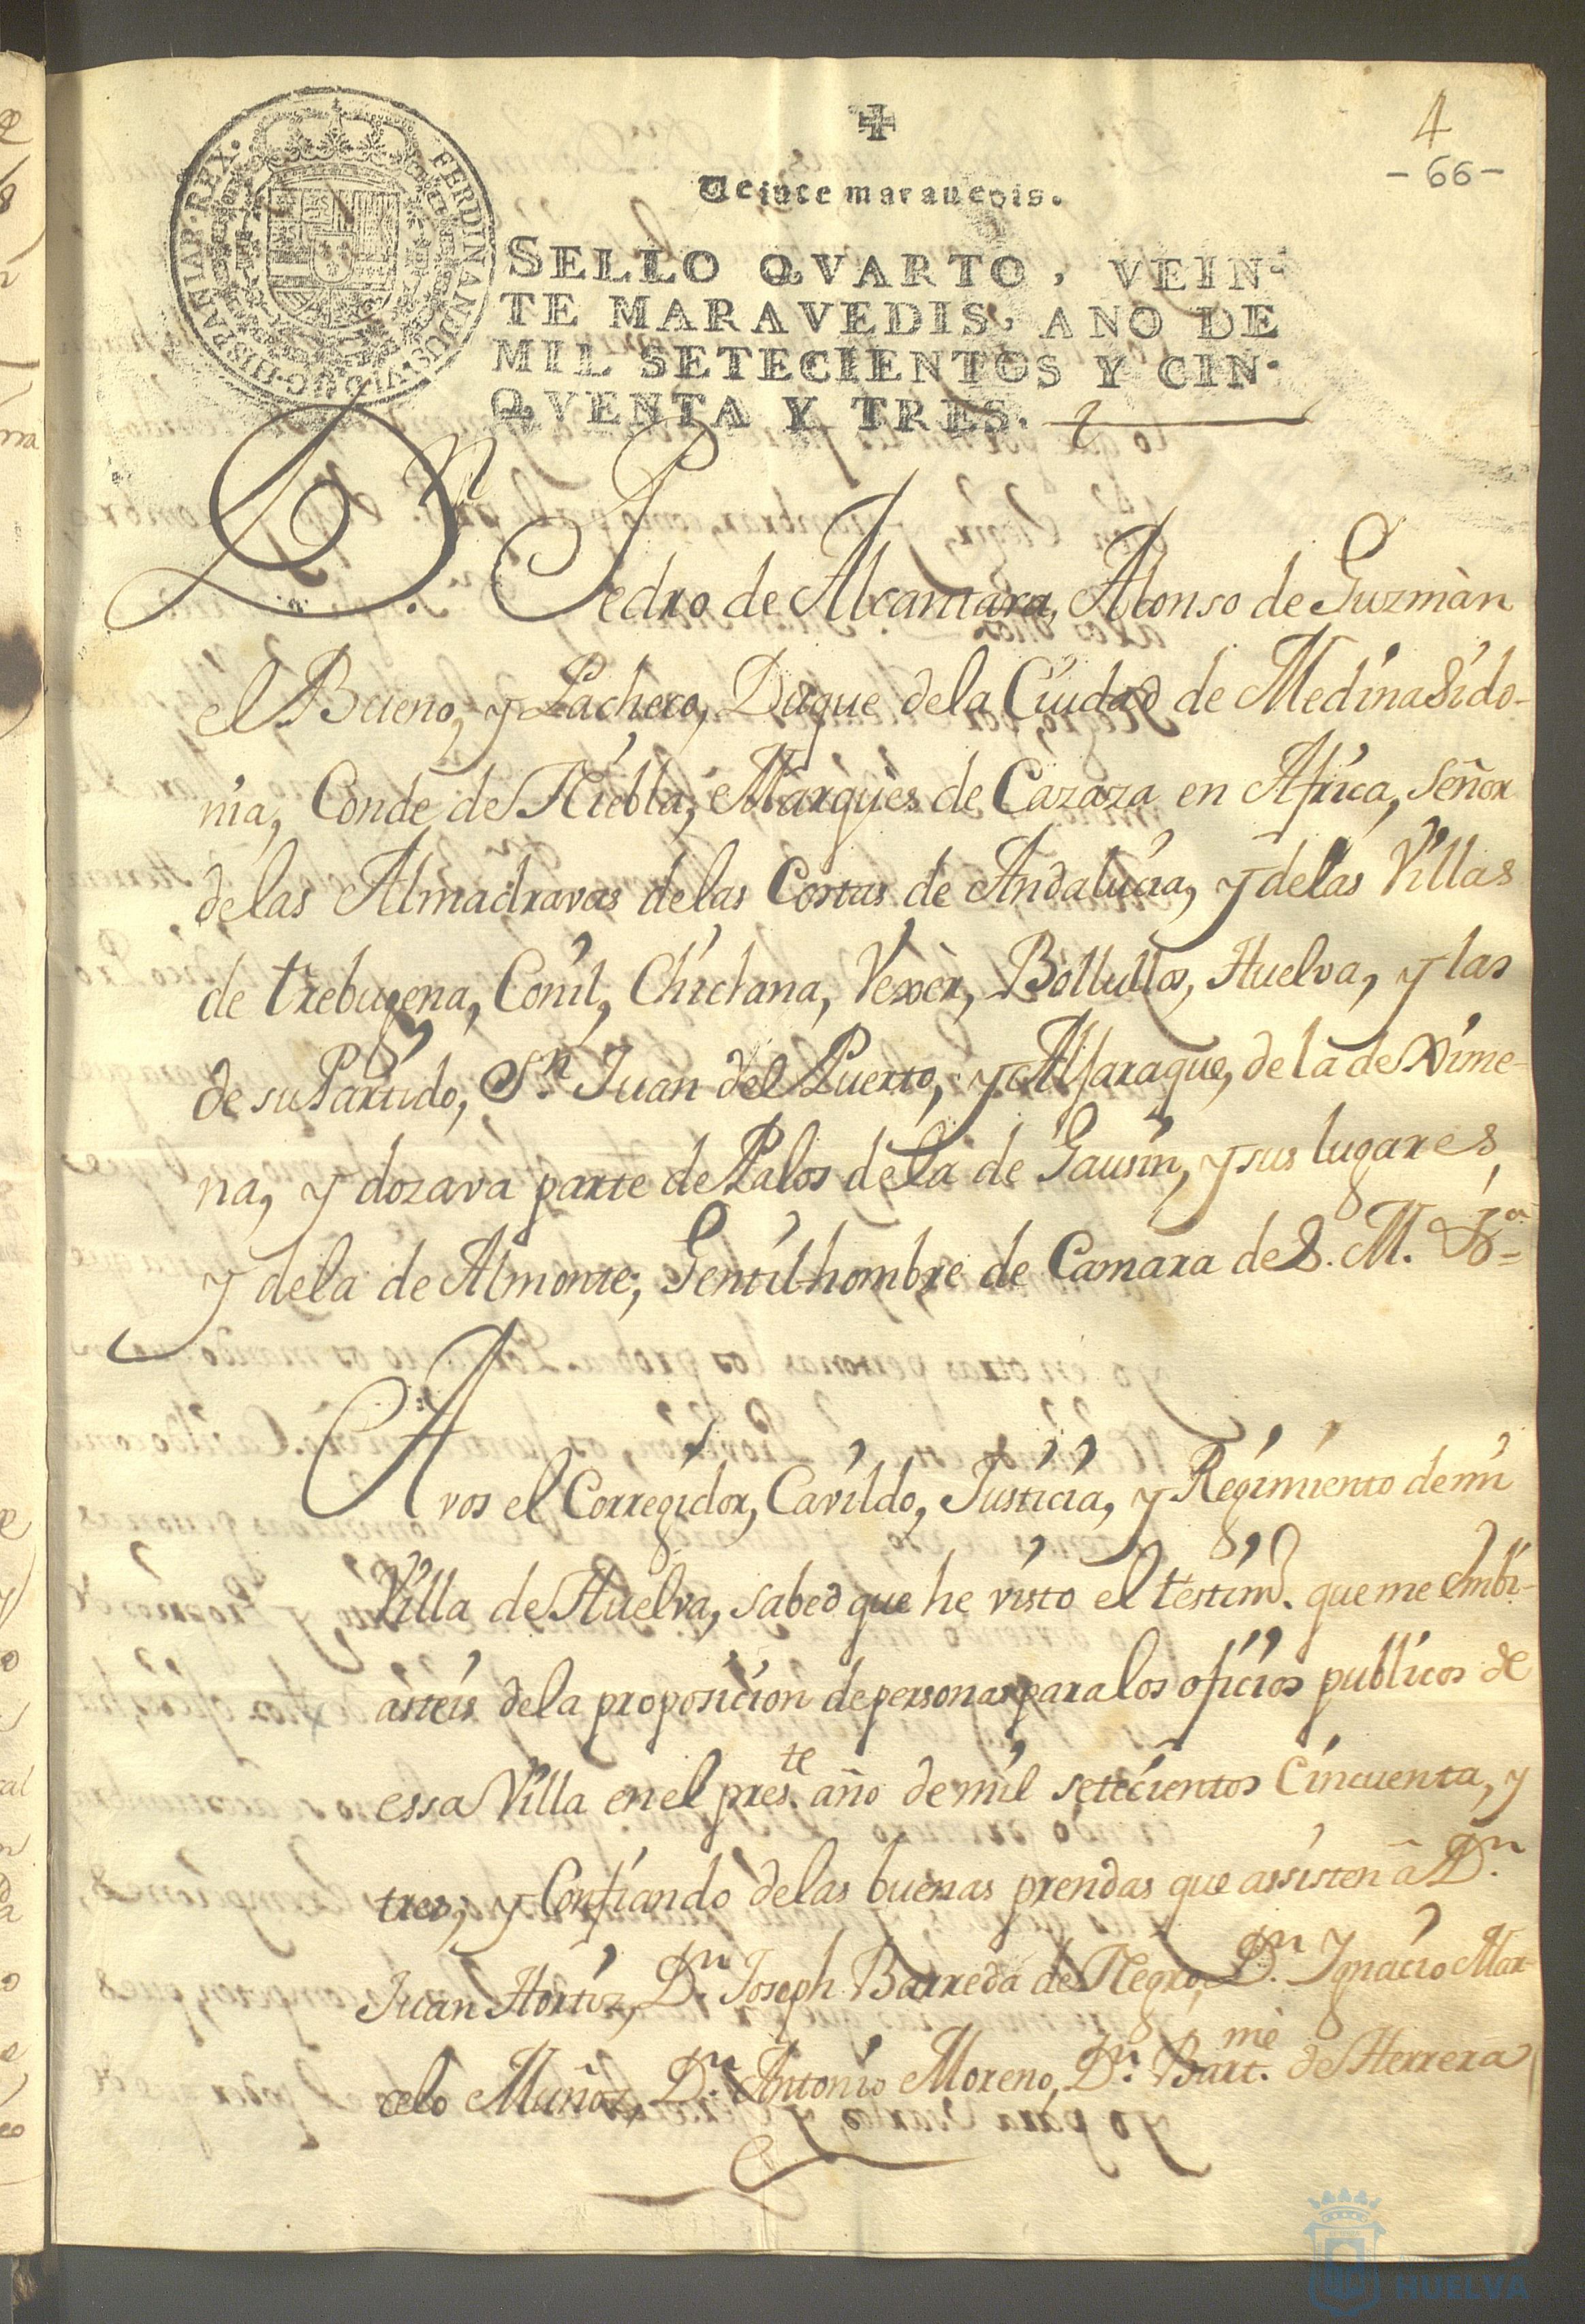 4
- 66 -
Veinte marauedis.
SELLO QVARTO, VEIN-
TE MARAVEDIS, AÑO DE
MIL SETECIENTOS Y CIN-
QVENTA Y TRES.
FERDINANDUS·VI·D·G·HISPANIAR·REX·
Dn. Pedro de Alcantara, Alonso de Guzmàn
el Bueno, y Pacheco, Duque dela Ciudad de Medinasido-
nia, Conde de Niebla, Marques de Cazaza en Africa, Señor
delas Almadravas delas Costas de Andalucia, y delas Villas
de trebugena, Conil, Chiclana, Vexèr, Bollullos, Huelva, y las
de su Partido, Sn. Juan del Puerto, y Alfaraque, de la de Xime-
na, y dozava parte de Palos dela de Gausin, y sus lugares,
y dela de Almonte; Gentil-hombre de Camara de S. M. &a
A vos el Corregidor, Cavildo, Justicia, y Regimiento de mi
Villa de Huelva, sabed que he visto el testimo. que me embi-
asteis dela proposicion de personas para los oficios publicos de
essa Villa en el preste. año de mil setecientos Cincuenta, y
tres, y Confiando delas buenas prendas que assisten â Dn.
Juan Hortiz, Dn. Joseph Barreda de Negro, Dn. Ygnacio Mar-
celo Muñoz, Dn. Antonio Moreno, Dn. Bartme. de Herrera
HUELVA